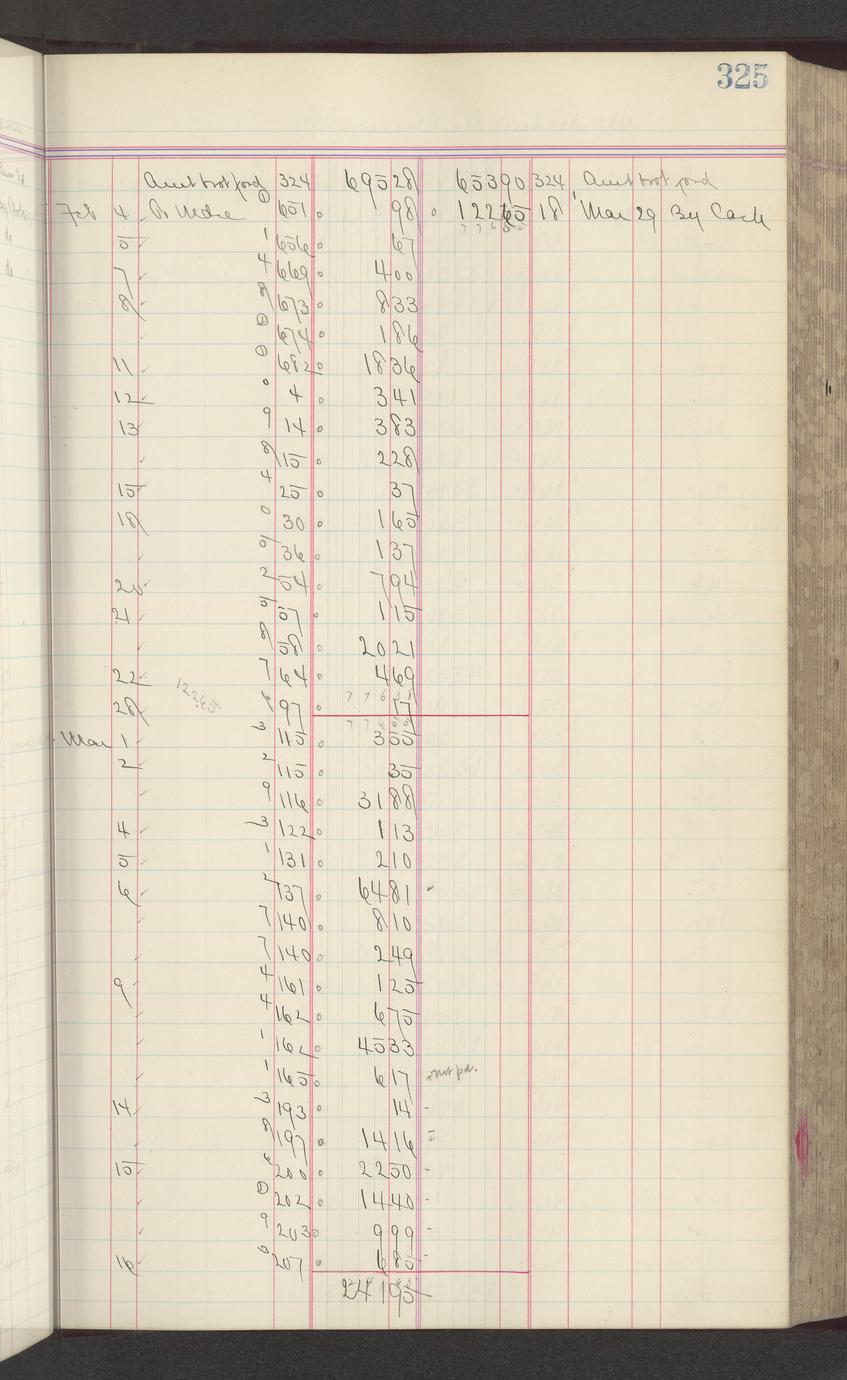 325
Amt brot ford 324 695 28 653 90 324 Amt brot ford
Feb 4 To Mdse 651 98 122 65 18 Mar 29 By Cash
5 1 656 67 77655
7 4 669 4 00
8 8 673 8 33
674 1 86
11 682 18 36
12 0 4 3 41
13 9 14 3 83
8 15 2 28
15 4 25 37
18 0 30 1 65
5 36 1 37
20 2 54 7 94
21 5 57 1 15
8 58 20 21
22 7 64 4 69
12265 776 38
28 6 97 17
776 55
Mar 1 3 115 3 55
2 2 115 35
9 116 31 88
4 3 122 1 13
5 1 131 2 10
6 2 137 64 81
7 140 8 10
7 140 2 49
9 4 161 1 25
4 162 6 75
1 162 45 33
1 165 6 17 not pd.
14 3 193 14
8 197 14 16
15 6 200 22 50
202 14 40
9 203 9 99
16 0 207 6 85
241 95